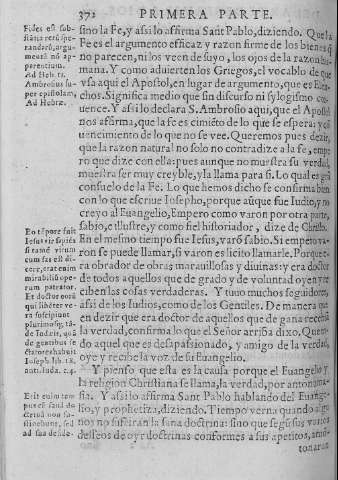 372 PRIMERA PARTE.
Fides est sub-
stātia rerū spe-
randarū, argu-
mentū nō ap-
parentium.
Ad Heb. 11.
Ambrosius su-
per epistolam,
Ad Hebræ.
sino la Fe, y assi lo affirma Sant Pablo, diziendo. Que la
Fe es el argumento efficaz y razon firme de los bienes q̃
no parecen, ni los veen de suyo, los ojos de la razon hu-
mana. Y como aduierten los Griegos, el vocablo de que
vsa aqui el Apostol, en lugar de argumento, que es Elen-
chos. Significa medio que sin discurso ni sylogismo con-
uence. Y assi lo declara S. Ambrosio aqui, que el Apostol
nos afirma, que la fe es cimiēto de lo que se espera: y cō
uencimiento de lo que no se vee. Queremos pues dezir,
que la razon natural no solo no contradize a la fe, empe
ro que dize con ella: pues aunque no muestra su verdad,
muestra ser muy creyble, y la llama para si. Lo qual es grā
consuelo de la Fe. Lo que hemos dicho se confirma bien
con lo que escriue Iosepho, porque aūque fue Iudio, y no
creyo al Euangelio, Empero como varon por otra parte,
sabio, e illustre, y como fiel historiador, dize de Christo.
Eo tēpore fuit
Iesus vir sapiēs
si tamē virum
eum fas est di-
cere, erat enim
mirabiliū ope-
rum patrator.
Et doctor eorū
qui libēter ve-
ra suscipiunt
plurimosq; tā-
de Iudæis, quā
de gentibus se
ctatores habuit
Ioseph. lib. 18.
anti. Iuda. c. 4.
En el mesmo tiempo fue Iesus, varō sabio. Si empero va-
ron se puede llamar, si varon es licito llamarle. Porque e-
ra obrador de obras marauillosas y diuinas: y era doctor
de todos aquellos que de grado y de voluntad oyen y re
ciben las cosas verdaderas. Y tuuo muchos seguidores,
assi de los Iudios, como de los Gentiles. De manera que
en dezir que era doctor de aquellos que de gana reciben
la verdad, confirma lo que el Señor arriba dixo, Que to-
do aquel que es desapassionado, y amigo de la verdad,
oye y recibe la voz de su Euangelio.
Y pienso que esta es la causa porque el Euangelio y
la religion Christiana se llama, la verdad, por antonoma-
Erit enim tem-
pus cū sanā do
ctrinā non su-
stinebunt, sed
ad sua deside-
sia. Y assi lo affirma Sant Pablo hablando del Euange-
lio, y prophetiza, diziendo. Tiempo verna quando algu
nos no sufriran la sana doctrina: sino que segū sus varios
desseos de oyr doctrinas conformes a sus apetitos, amō-
tonaran